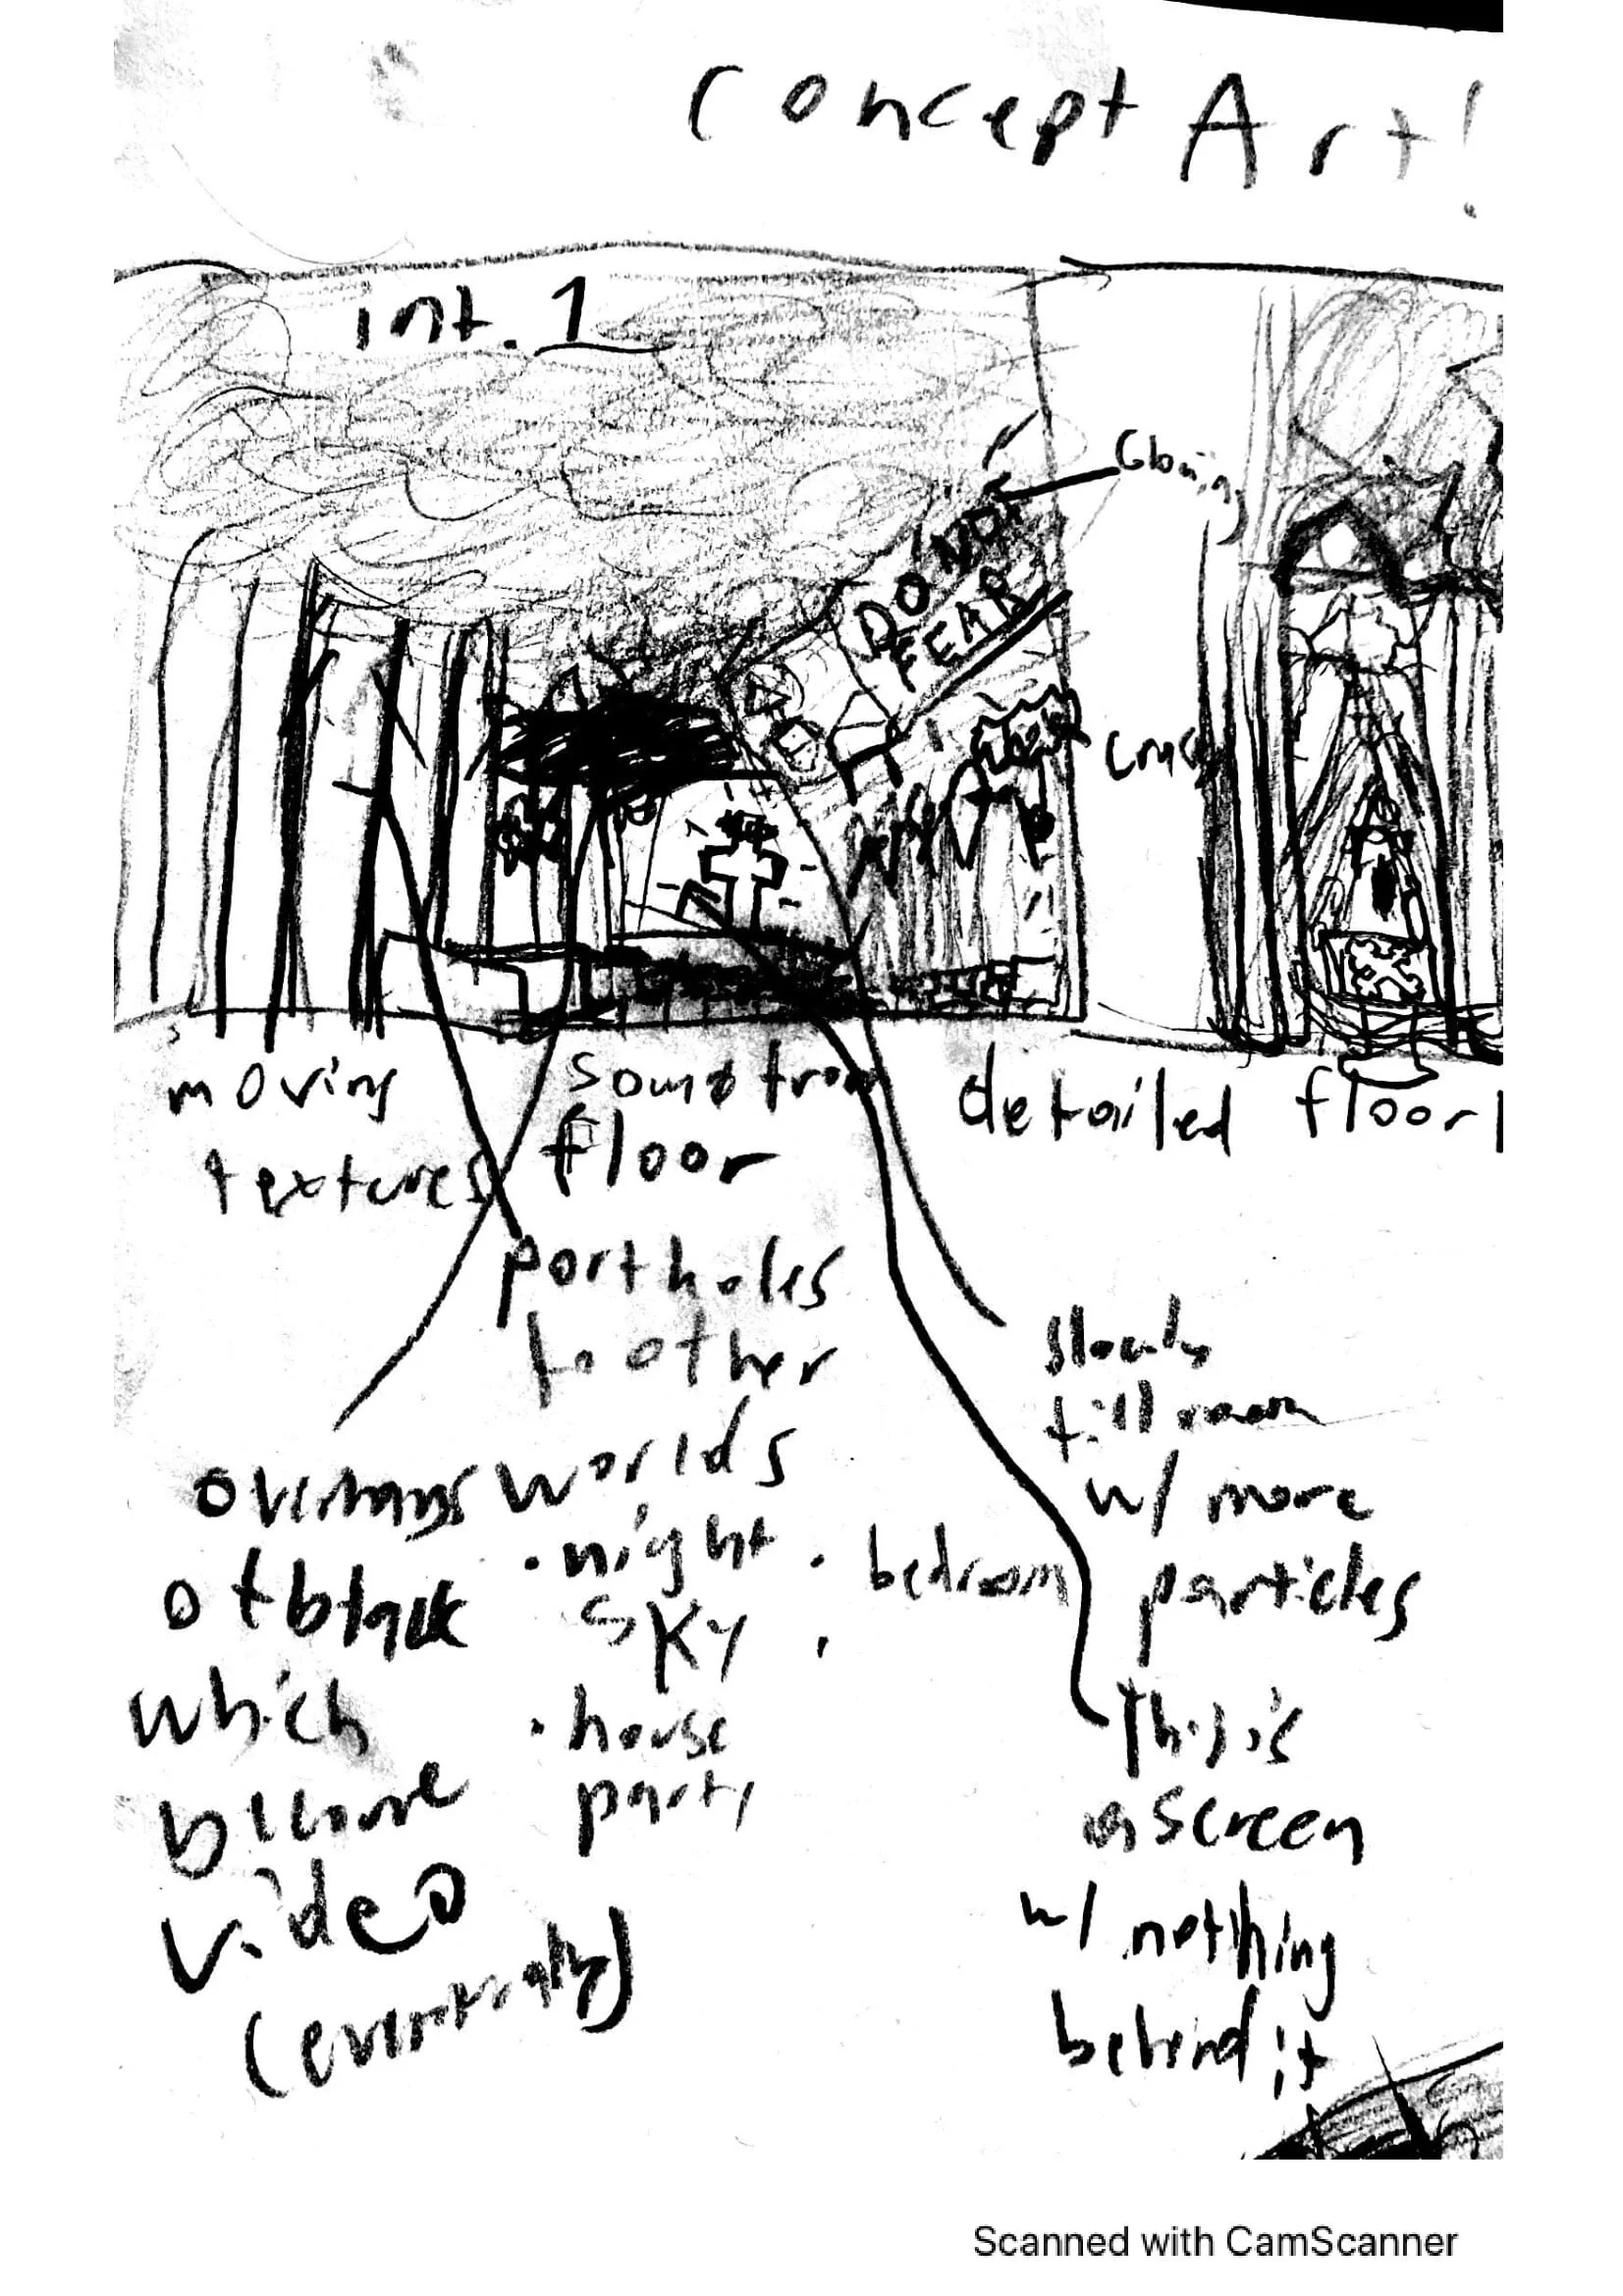 Concept Art!
int. 1
Glowing
DO NOT
FEAR
moving
textures
sound from
floor
detailed floor
portholes
to other
worlds
· night
sky
· bedroom
· house
party
overhangs
of black
which
become
video
(eventually)
slowly
fill room
w/ more
particles
this is
a screen
w/ nothing
behind it
Scanned with CamScanner